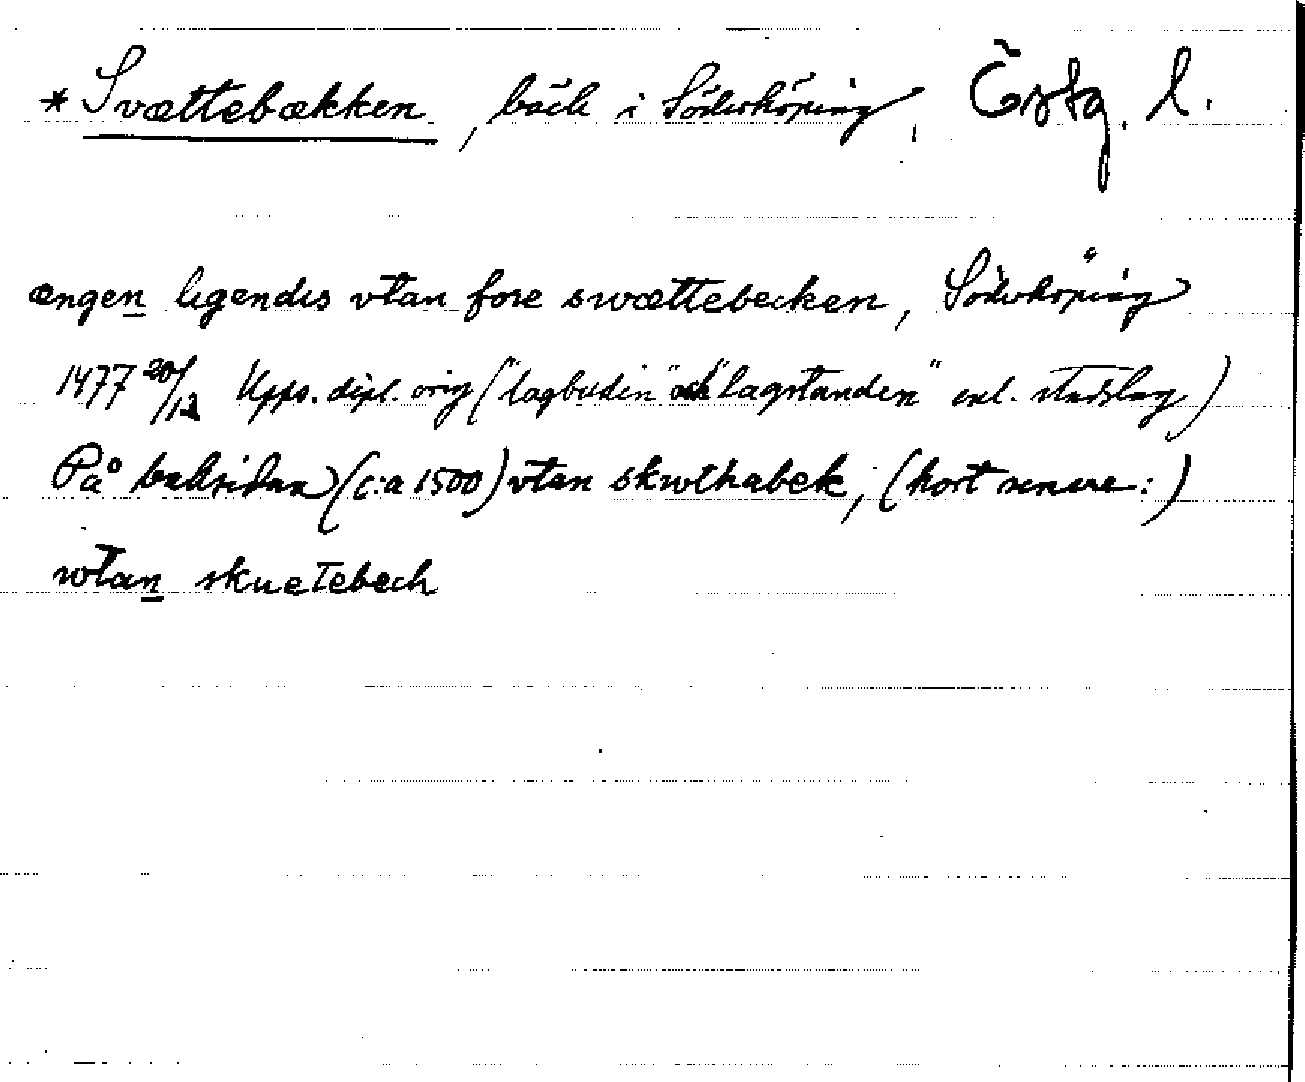 *Svættebækken, bäck i Söderköping, Östg. l.
ængen ligendis vtan fore swættebecken, Söderköping
1477 20/12 Upps. dipl. orig ("lagbudin" och "lagstanden" enl. stadslag)
På baksidan (c:a 1500) vtan skwthabek, (kort senare:)
wtan skuetebech